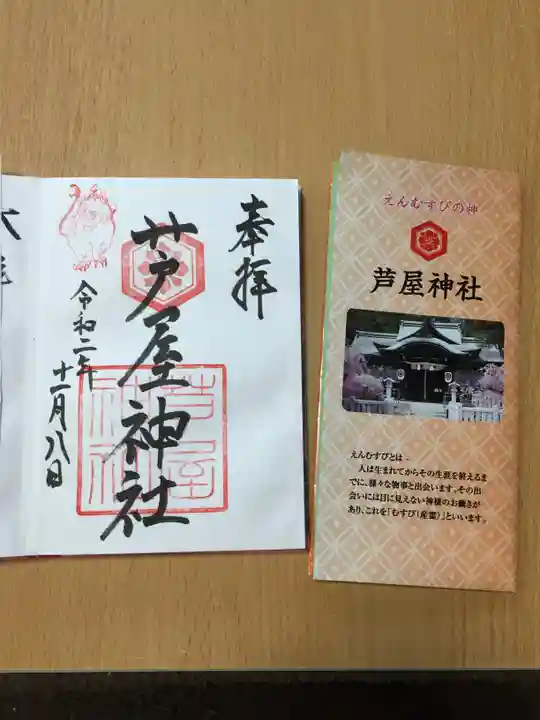 奉拝
芦屋神社
芦屋
神社
令和二年
十一月八日
えんむすびの神
芦屋神社
えんむすびとは -
人は生まれてからその生涯を終えるま
でに、様々な物事と出会います。その出
会いには目に見えない神様のお働きが
あり、これを「むすび(産霊)」といいます。